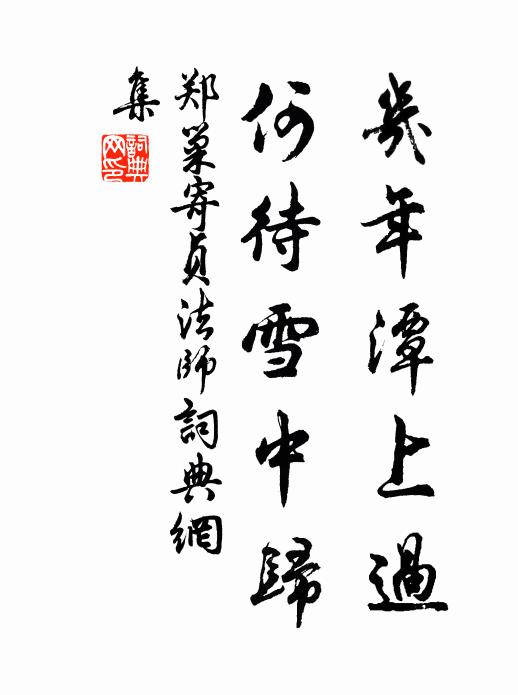 幾年潭上過
何待雪中歸
郑巢寄貞法師詞典網
集
詞典
网印